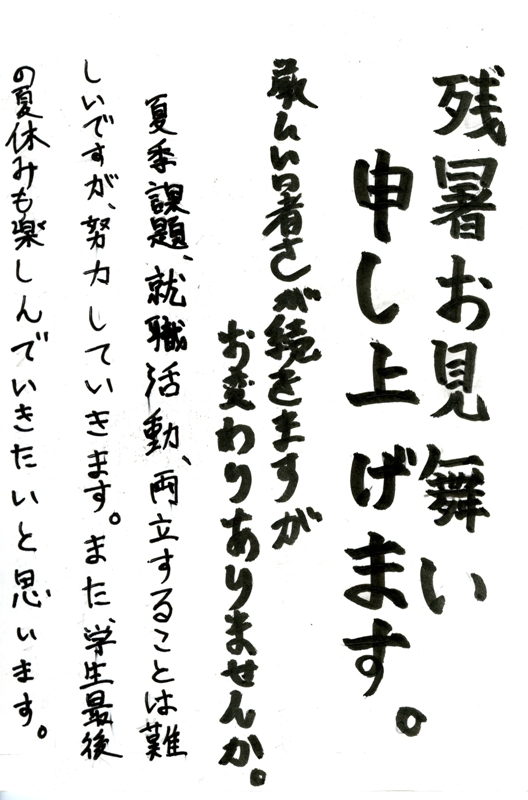 残暑お見舞い
申し上げます。
厳しい暑さが続きますが
お変わりありませんか。
夏季課題、就職活動、両立することは難
しいですが、努力していきます。また、学生最後
の夏休みも楽しんでいきたいと思います。